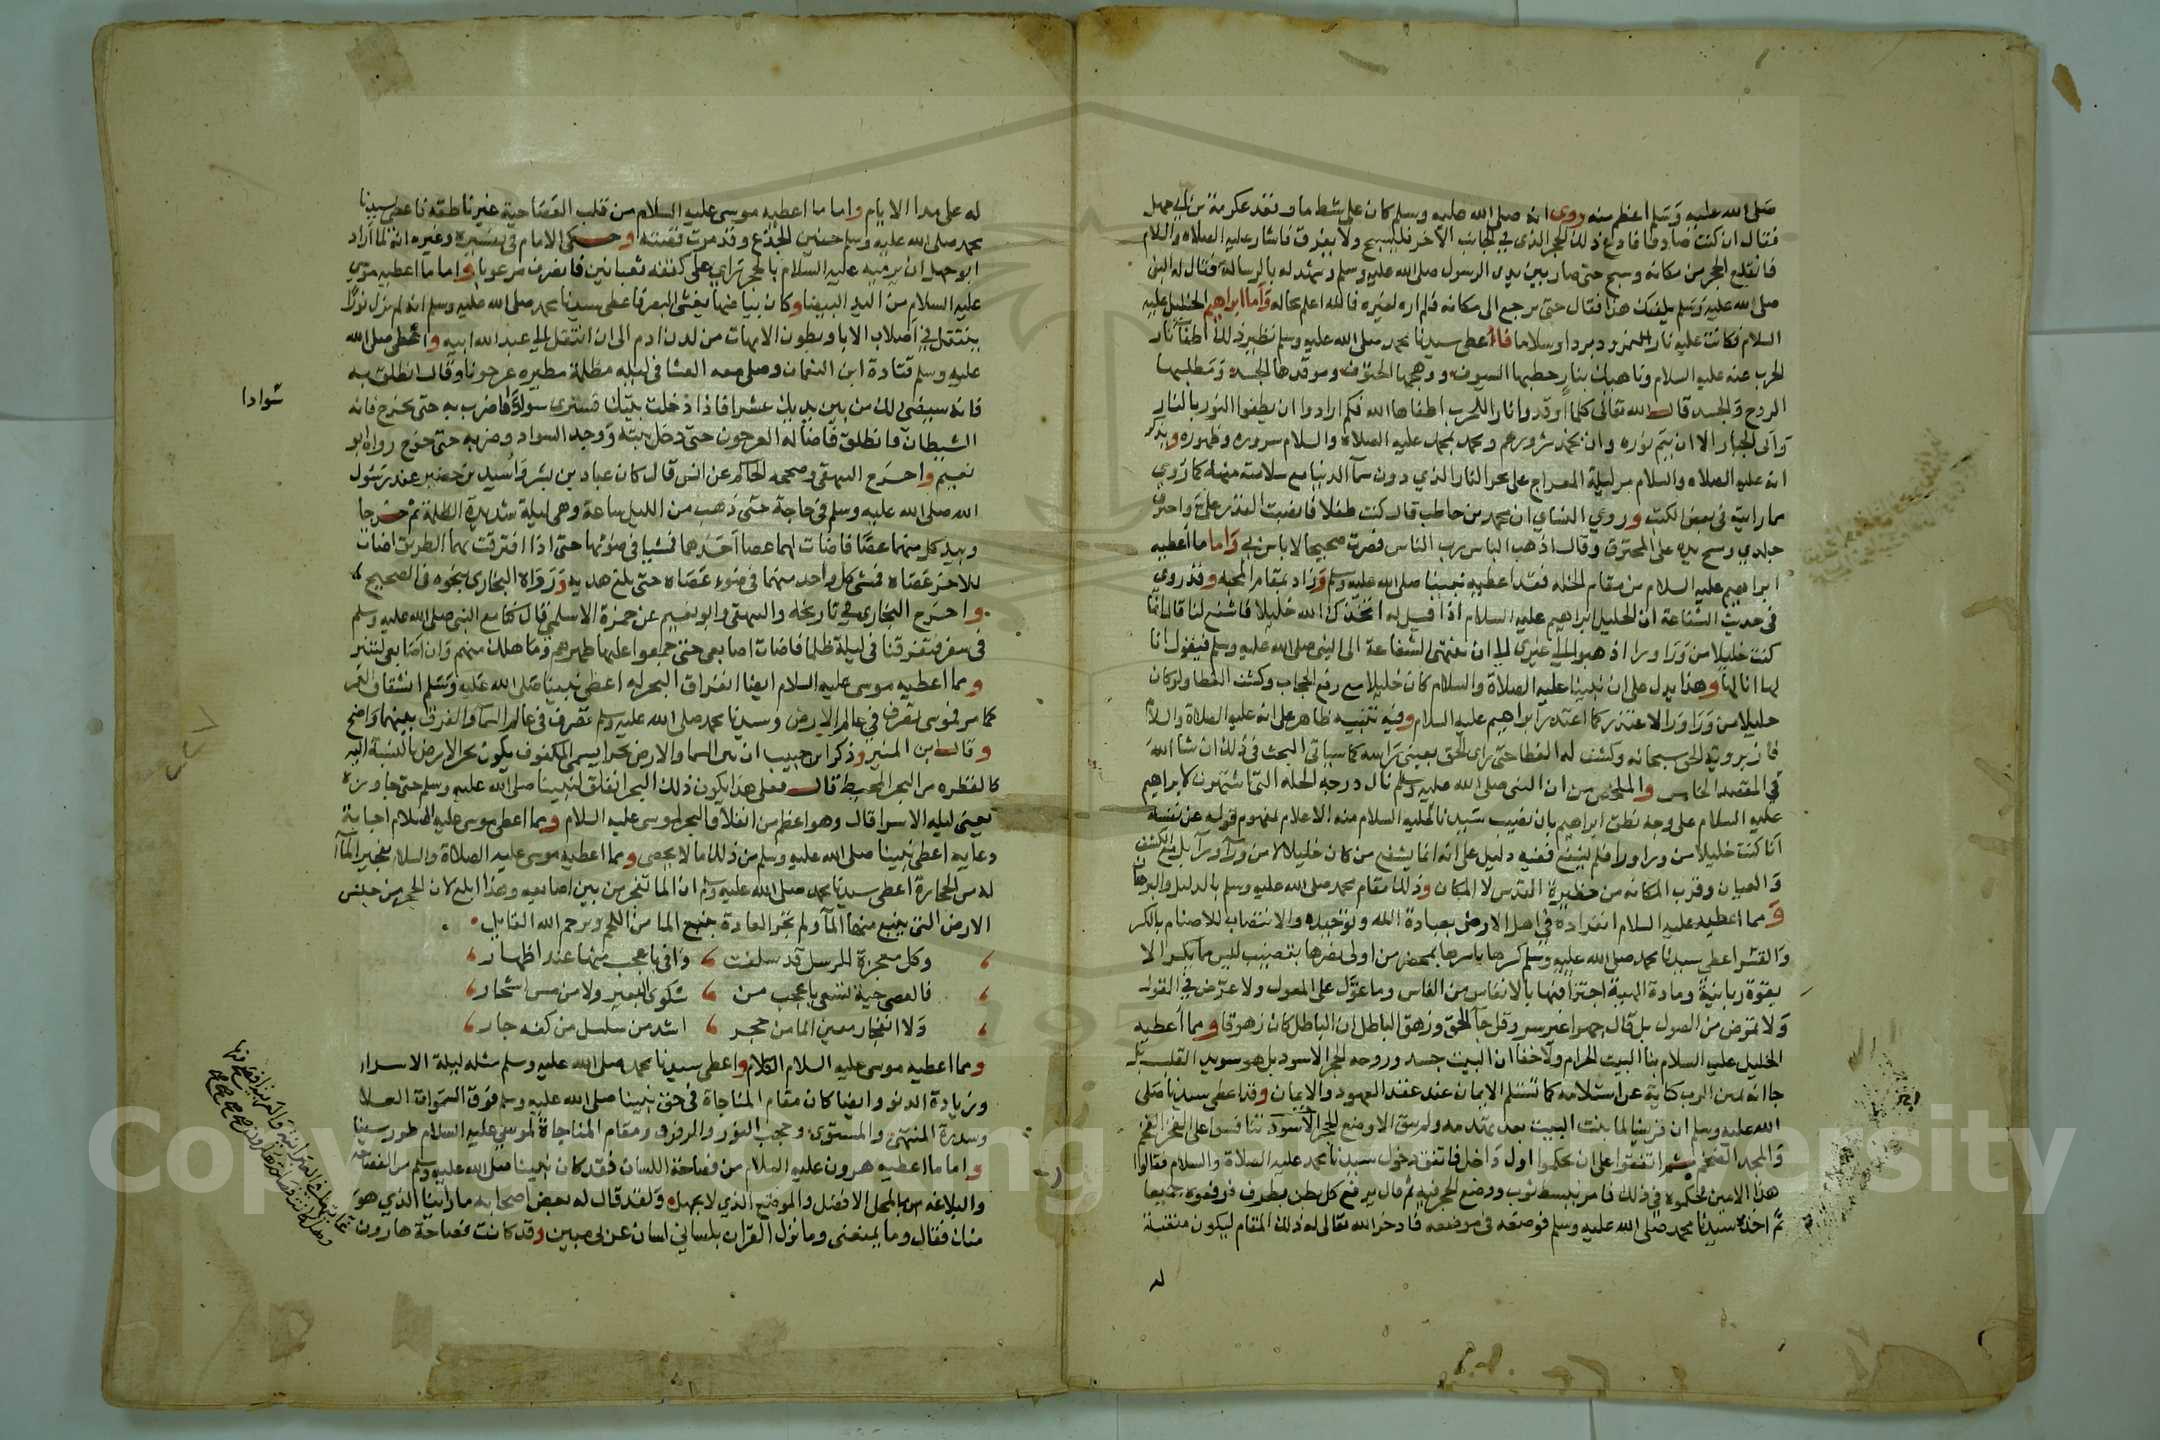 صلى الله عليه وسلم اعظم منه روى انه صلى الله عليه وسلم كان على شط ماء وقعد عكرمة بن ابي جهل
فقال ان كنت صادقا فادع ذلك الحجر الذي في الجانب الآخر فليسبح ولا يغرق فاشار عليه الصلاه والسلام
فانقلع الحجر من مكانه وسبح حتى صار بين يدى الرسول صلى الله عليه وسلم وشهد له بالرسالة فقال له النبي
صلى الله عليه وسلم يكفيك هذا فقال حتى يرجع الى مكانه فلم اره لغيره فالله اعلم بحاله واما ابراهيم الخليل عليه
السلام فكانت عليه نار النمرود بردا وسلاما فاعطى سيدنا محمد صلى الله عليه وسلم نظير ذلك اطفأ نار
الحرب عنه عليه السلام وناهيك بنار حطبها السيوف ووهجها الحتوف وموقدها الحسد ومطلبها
الروح والجسد قال الله تعالى كلما اوقدوا نارا للحرب اطفاها الله فكم ارادوا ان يطفوا النور بالنار
وابى الجبار الا ان يتم نوره وان يخمد شرورهم ومحمد لمحمد عليه الصلاة والسلام سروره وظهوره ويذكر
انه عليه الصلاه والسلام مر ليلة المعراج على بحر النار الذي دون سما الدنيا مع سلامته منه كما روي
مما رايت في بعض الكتب وروي النساي ان محمد بن حاطب قال كنت طفلا فانصبت القدر علي واحترق
جلدي ومسح يده على المحترق وقال اذهب الباس رب الناس فصرت صحيحا لا باس بي واما ما أعطيه
ابراهيم عليه السلام من مقام الخله فقد اعطيه نبينا صلى الله عليه وسلم وزاد بمقام المحبه وقد روي
في حديث الشفاعة ان الخليل ابراهيم عليه السلام اذا قيل له اتخذك الله خليلا فاشفع لنا قال انما
كنت خليلا من وراء وراء اذهبوا الى غيري الى ان تنتهى الشفاعة الى النبي صلى الله عليه وسلم فيقول انا
لها انا لها وهذا يدل على ان نبينا عليه الصلاة والسلام كان خليلا مع رفع الحجاب وكشف الغطا ولو كان
خليلا من وراء وراء لاعتذر كما اعتذر ابراهيم عليه السلام وفيه تنبيه ظاهر على انه عليه الصلاة والسلام
فاز برؤية الحق سبحانه وكشف له الغطا حتى راى الحق بعيني راسه كما سياتى البحث في ذلك ان شا الله
في المقصد الخامس والملخص من ان النبي صلى الله عليه وسلم نال درجة الخلة التى اشتهرت لابراهيم
عليه السلام على وجه نطق ابراهيم بان نصيب سيدنا عليه السلام منه الاعلا بمفهوم قوله عن نفسه
انا كنت خليلا من وراء وراء فلم يشفع ففيه دليل على انه انما يشفع من كان خليلا لا من وراء وراء بل مع الكشف
والعيان وقرب المكانه من حظيرة القدس لا المكان وذلك مقام محمد صلى الله عليه وسلم بالدليل والبرهان
ومما اعطيه عليه السلام انفراده في اهل الارض بعبادة الله وتوحيده والانتصاب للاصنام بالكسر
والقسر اعطي سيدنا محمد صلى الله عليه وسلم كسرها باسرها بمحضر من اولى نصرها بقضيب ليس مما يكسر الا
بقوة ربانية ومادة الهية اجتزا فيها بالانفاس من الفاس وما عول على المعول ولا عرض في القول
ولا تمرض من الصول بل قال جهرا غير سر وقل جا الحق وزهق الباطل ان الباطل كان زهوقا ومما أعطيه
الخليل عليه السلام بنا البيت الحرام ولا خفا ان البيت جسد وروحه الحجر الاسود بل هو سويدا القلب بل
جا انه يمين الرب كناية عن استلامه كما تستلم الايمان عند عقد العهود والايمان وقد اعطى سيدنا صلى
الله عليه وسلم ان قريشا لما بنت البيت بعد تهدمه ولم يبق الا وضع الحجر الاسود تنافسوا على الفخر الفخم
والمجد الضخم ثم اتفقوا على ان يحكموا اول داخل فاتفق دخول سيدنا محمد عليه الصلاة والسلام فقالوا
هذا الامين فحكموه في ذلك فامر ببسط ثوب ووضع الحجر فيه ثم قال يرفع كل بطن بطرف فرفعوه جميعا
ثم اخذه سيدنا محمد صلى الله عليه وسلم فوضعه في موضعه فادخر الله تعالى له ذلك المقام ليكون منقبة
له
له على مدا الايام واما ما اعطيه موسى عليه السلام من قلب العصا حية غير ناطقه فاعطى سيدنا
محمد صلى الله عليه وسلم حنين الجذع وقد مرت قصته وحكى الامام في تفسيره وغيره انه لما أراد
ابو جهل ان يرميه عليه السلام بالحجر راي على كتفه ثعبانين فانصرف مرعوبا واما ما اعطيه موسى
عليه السلام من اليد البيضا وكان بياضها يغشى البصر فاعطى سيدنا محمد صلى الله عليه وسلم انه لم يزل نورا
ينتقل في اصلاب الابا وبطون الامهات من لدن ادم الى ان انتقل الى عبد الله ابيه واعطى صلى الله
عليه وسلم قتادة ابن النعمان وصلى معه العشا في ليلة مظلمة مطيره عرجونا وقال انطلق به
فانه سيضي لك من بين يديك عشرا فاذا دخلت بيتك فسترى سوادا فاضربه حتى يخرج فانه
سوادا
الشيطان فانطلق فاضا له العرجون حتى دخل بيته ووجد السواد وضربه حتى خرج رواه ابو
نعيم واخرج البيهقي وصححه الحاكم عن انس قال كان عباد بن بشر واسيد بن حضير عند رسول
الله صلى الله عليه وسلم في حاجة حتى ذهب من الليل ساعة وهي ليلة شديدة الظلمة ثم خرجا
وبيد كل منهما عصا فاضات لهما عصا احدهما فمشيا في ضوئها حتى اذا افترقت بهما الطريق اضات
للاخر عصاه فمشى كل واحد منهما في ضوء عصاه حتى بلغ هديه ورواه البخارى بنحوه في الصحيح
واخرج البخارى في تاريخه والبيهقي وابو نعيم عن حمزة الاسلمي قال كنا مع النبي صلى الله عليه وسلم
في سفر فتفرقنا في ليلة ظلما فاضات اصابعى حتى جمعوا عليها ظهرهم وما هلك منهم وان اصابعى لتنير
ومما اعطيه موسى عليه السلام ايضا انفراق البحر له اعطى نبينا صلى الله عليه وسلم انشقاق القمر
كما مر فموسى تصرف في عالم الارض وسيدنا محمد صلى الله عليه وسلم تصرف في عالم السما والفرق بينهما واضح
وقال ابن المنير وذكر ابن حبيب ان بين السما والارض بحرا يسمى المكفوف يكون بحر الارض بالنسبة اليه
كالقطره من البحر المحيط قال فعلى هذا يكون ذلك البحر انفلق لنبينا صلى الله عليه وسلم حتى جاوزه
يعني ليلة الاسرا قال وهو اعظم من انفلاق البحر لموسى عليه السلام ومما اعطى موسى عليه السلام اجابة
دعايه اعطى نبينا صلى الله عليه وسلم من ذلك ما لا يحصى ومما اعطيه موسى عليه الصلاة والسلام تفجير الما
له من الحجارة اعطى سيدنا محمد صلى الله عليه وسلم ان الما تفجر من بين اصابعه وهذا ابلغ لان الحجر من جنس
الارض التى ينبع منها الما ولم تجر العادة بنبع الما من اللحم ويرحم الله القايل
وكل معجزة للرسل قد سلفت وافى باعجب منها عند اظهار
فالعصى حية تسعى باعجب من شكوى البعير ولا من مس اشجار
ولا انفجار معين الما من حجر اشد من سلسل من كفه جار
ومما اعطيه موسى عليه السلام الكلام واعطى سيدنا محمد صلى الله عليه وسلم مثله ليلة الاسرا
وزيادة الدنو وايضا كان مقام المناجاة في حق نبينا صلى الله عليه وسلم فوق السموات العلا
وسدرة المنتهى والمستوى وحجب النور والرفرف ومقام المناجاة لموسى عليه السلام طور سينا
واما ما اعطيه هرون عليه السلام من فصاحة اللسان فقد كان نبينا صلى الله عليه وسلم من الفصاحه
والبلاغه بالمحل الافضل والموضع الذي لا يجهل ولقد قال له بعض اصحابه ما راينا الذي هو
منك فقال وما يمنعنى وما نزل القران بلساني لسان عربى مبين وقد كانت فصاحة هارون
Copyright © King Saud University
195